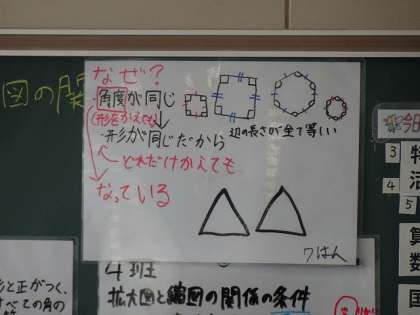 図の関
なぜ？
・角度が同じ
(形をかえても)
・形が同じだから
辺の長さが全て等しい
どれだけかえても
なっている
7はん
4班
拡大図と縮図の関係の条件
と正がつく、
すべての角の
今日
3
4
5
特
活
算
数
国